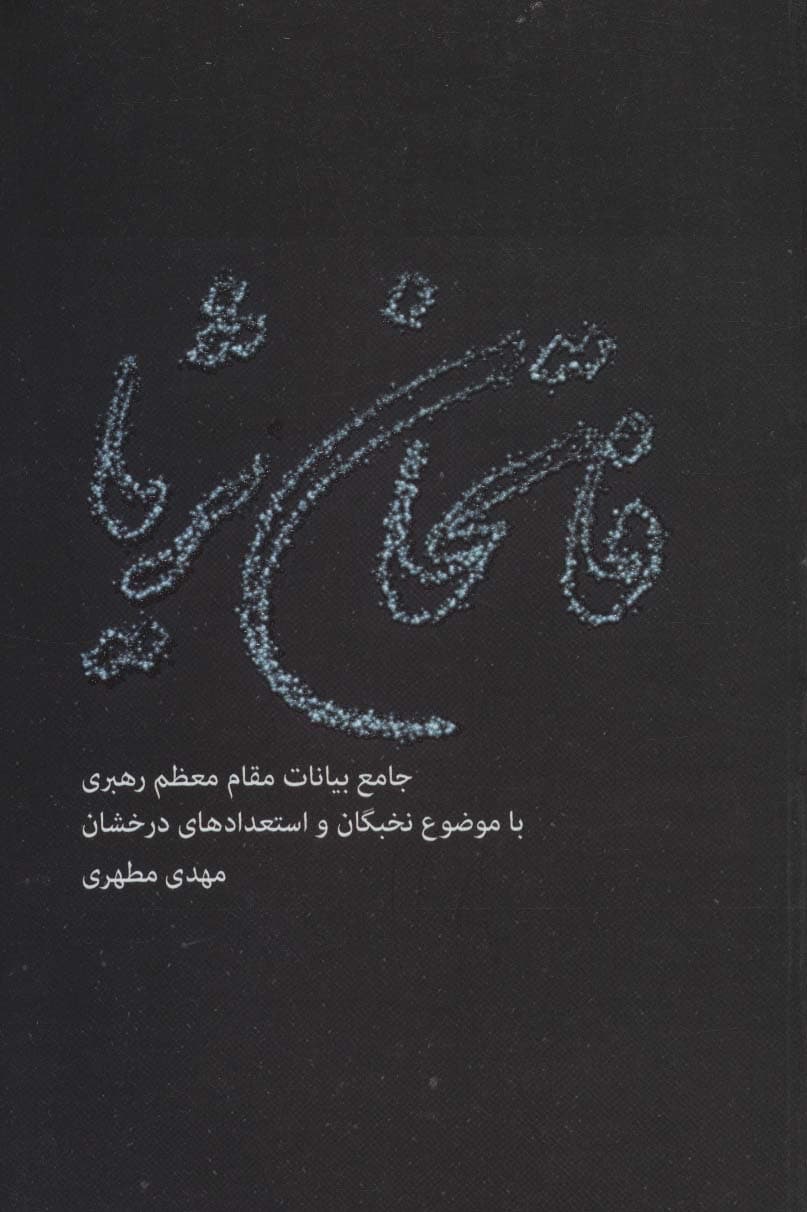 فاتحان ثریا
جامع بیانات مقام معظم رهبری
با موضوع نخبگان و استعدادهای درخشان
مهدی مطهری